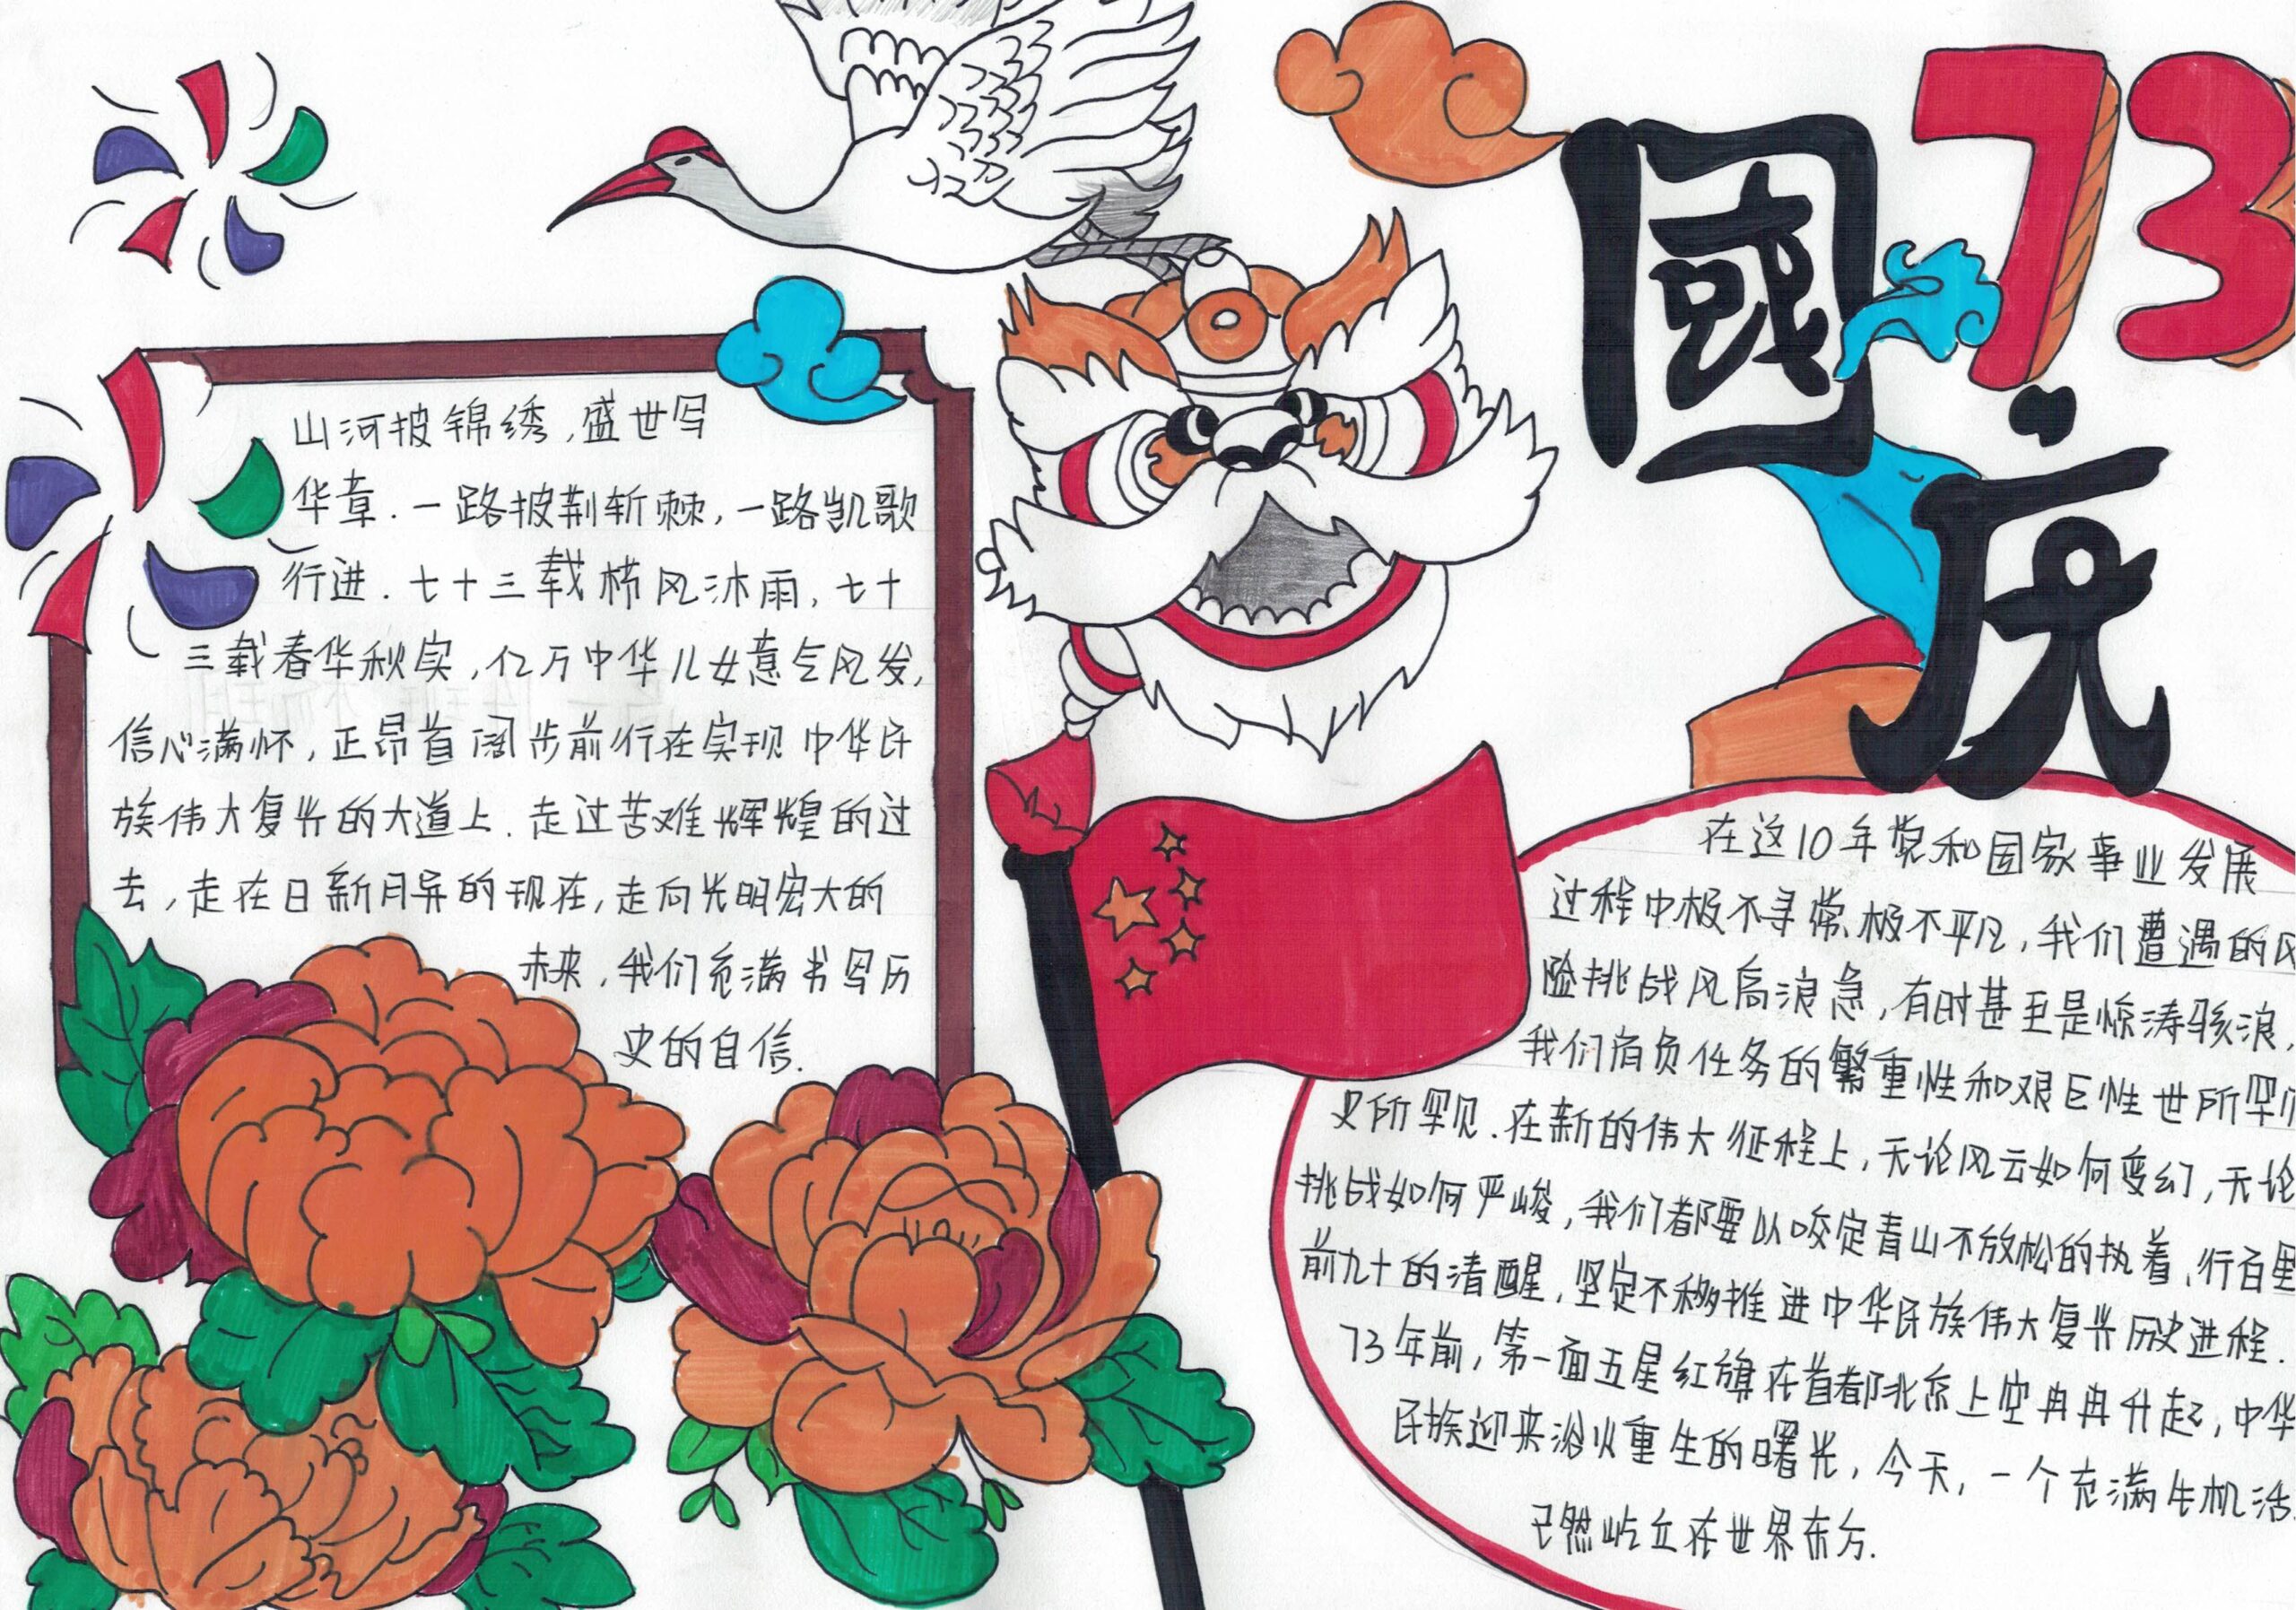 73
國
庆
山河披锦绣,盛世写
华章.一路披荆斩棘,一路凯歌
行进.七十三载栉风沐雨,七十
三载春华秋实,亿万中华儿女意气风发,
信心满怀,正昂首阔步前行在实现中华民
族伟大复兴的大道上.走过苦难辉煌的过
去,走在日新月异的现在,走向光明宏大的
未来,我们充满书写历
史的自信.
在这10年党和国家事业发展
过程中极不寻常、极不平凡,我们遭遇的风
险挑战风高浪急,有时甚至是惊涛骇浪,
我们肩负任务的繁重性和艰巨性世所罕
史所罕见.在新的伟大征程上,无论风云如何变幻,无论
挑战如何严峻,我们都要以咬定青山不放松的执着、行百里
前九十的清醒,坚定不移推进中华民族伟大复兴历史进程.
73年前,第一面五星红旗在首都北京上空冉冉升起,中华
民族迎来浴火重生的曙光,今天,一个充满生机活
已然屹立在世界东方.